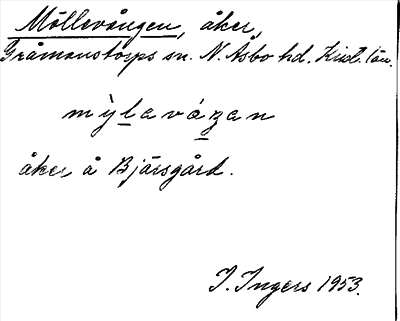 Möllevången, åker,
Gråmanstorps sn. N. Åsbo hd. Krist. län.
mỳlavázan
åker å Bjärsgård.
I. Ingers 1953.